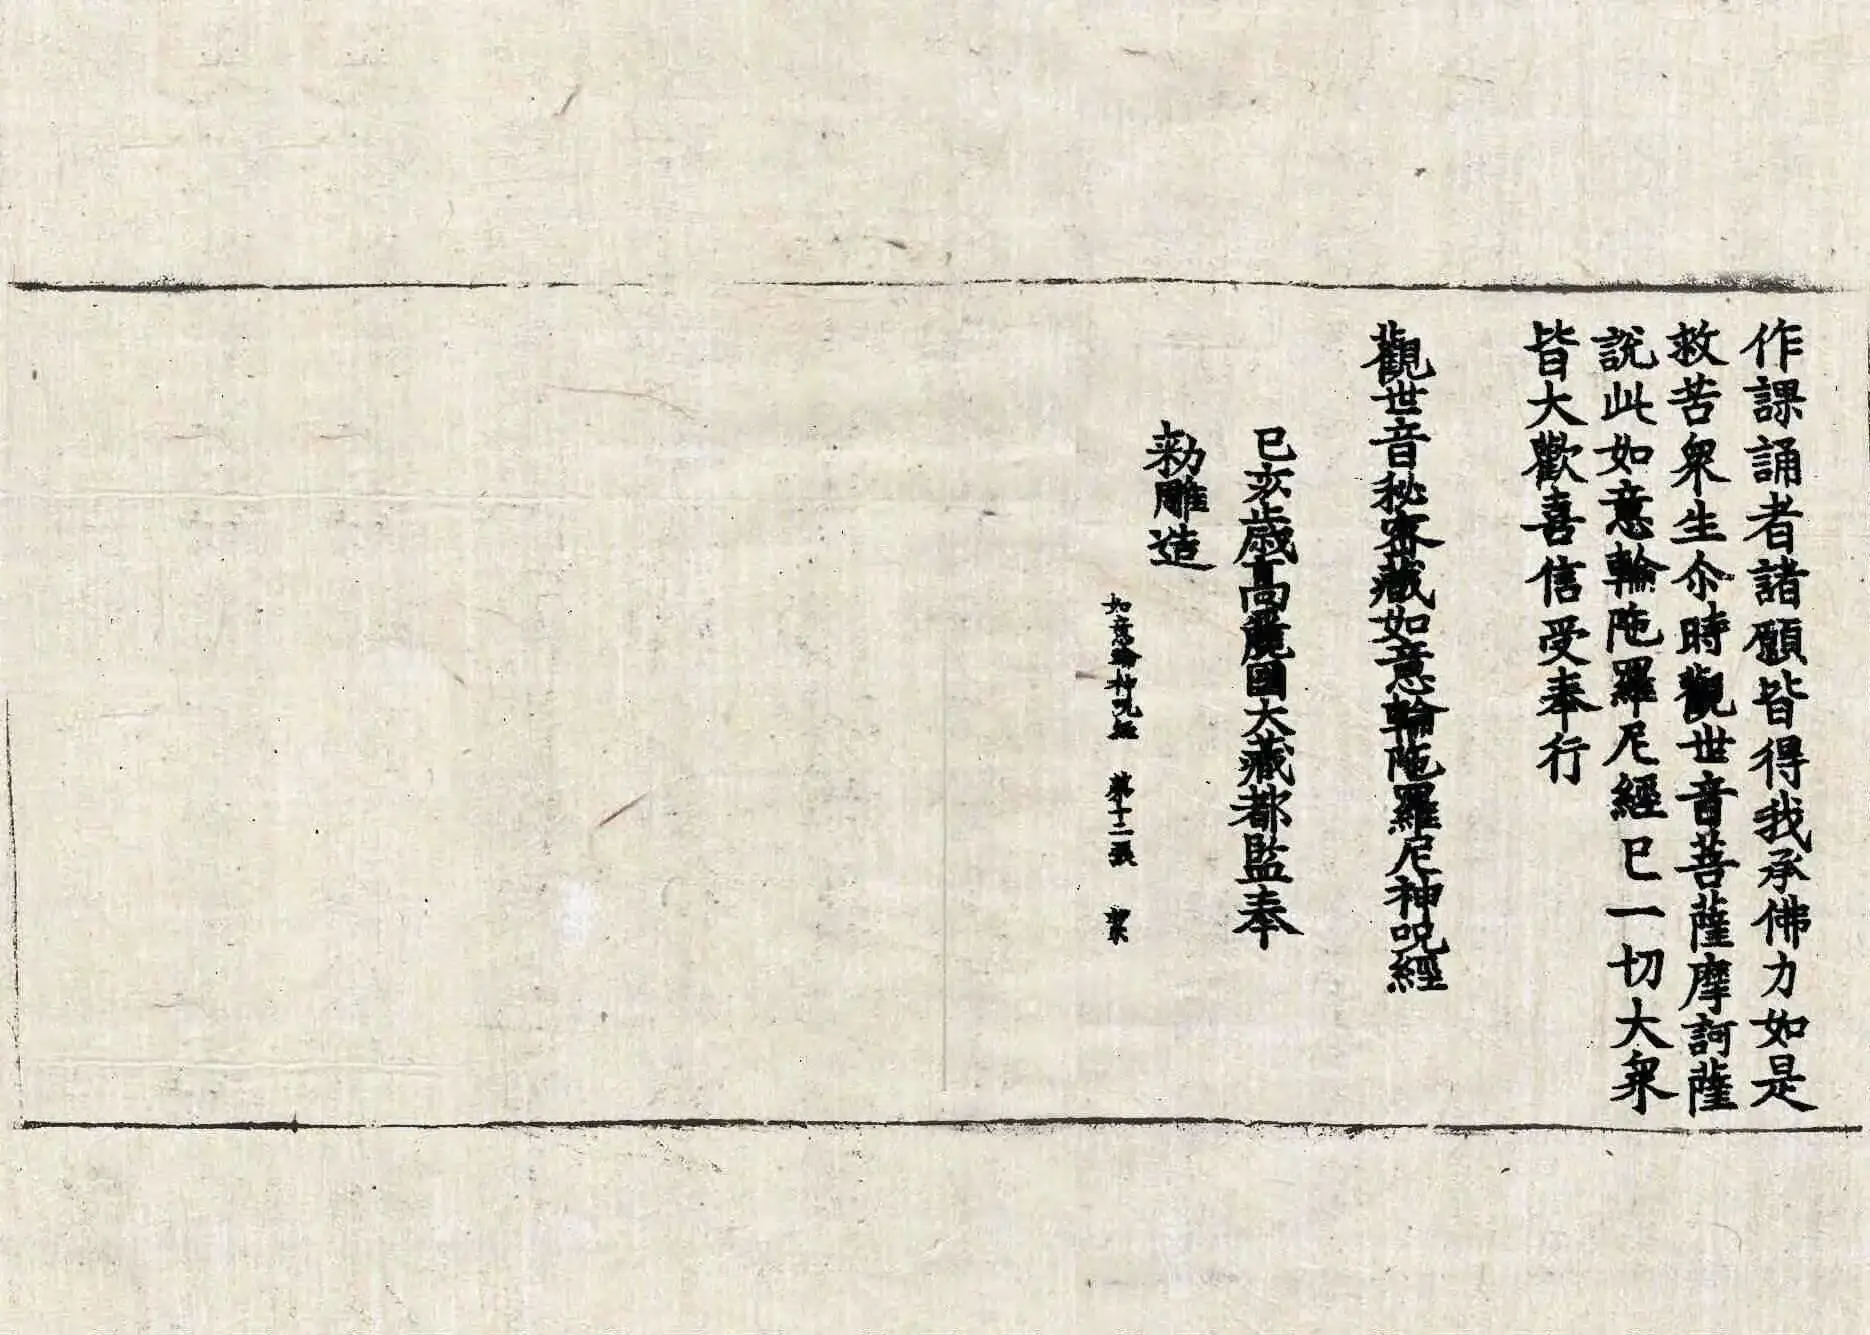 作課誦者諸願皆得我承佛力如是
救苦衆生尒時觀世音菩薩摩訶薩
說此如意輪陁羅尼經已一切大衆
皆大歡喜信受奉行
觀世音秘密藏如意輪陁羅尼神呪經
己亥歲高麗國大藏都監奉
勑雕造
如意輪神呪經 第十二張